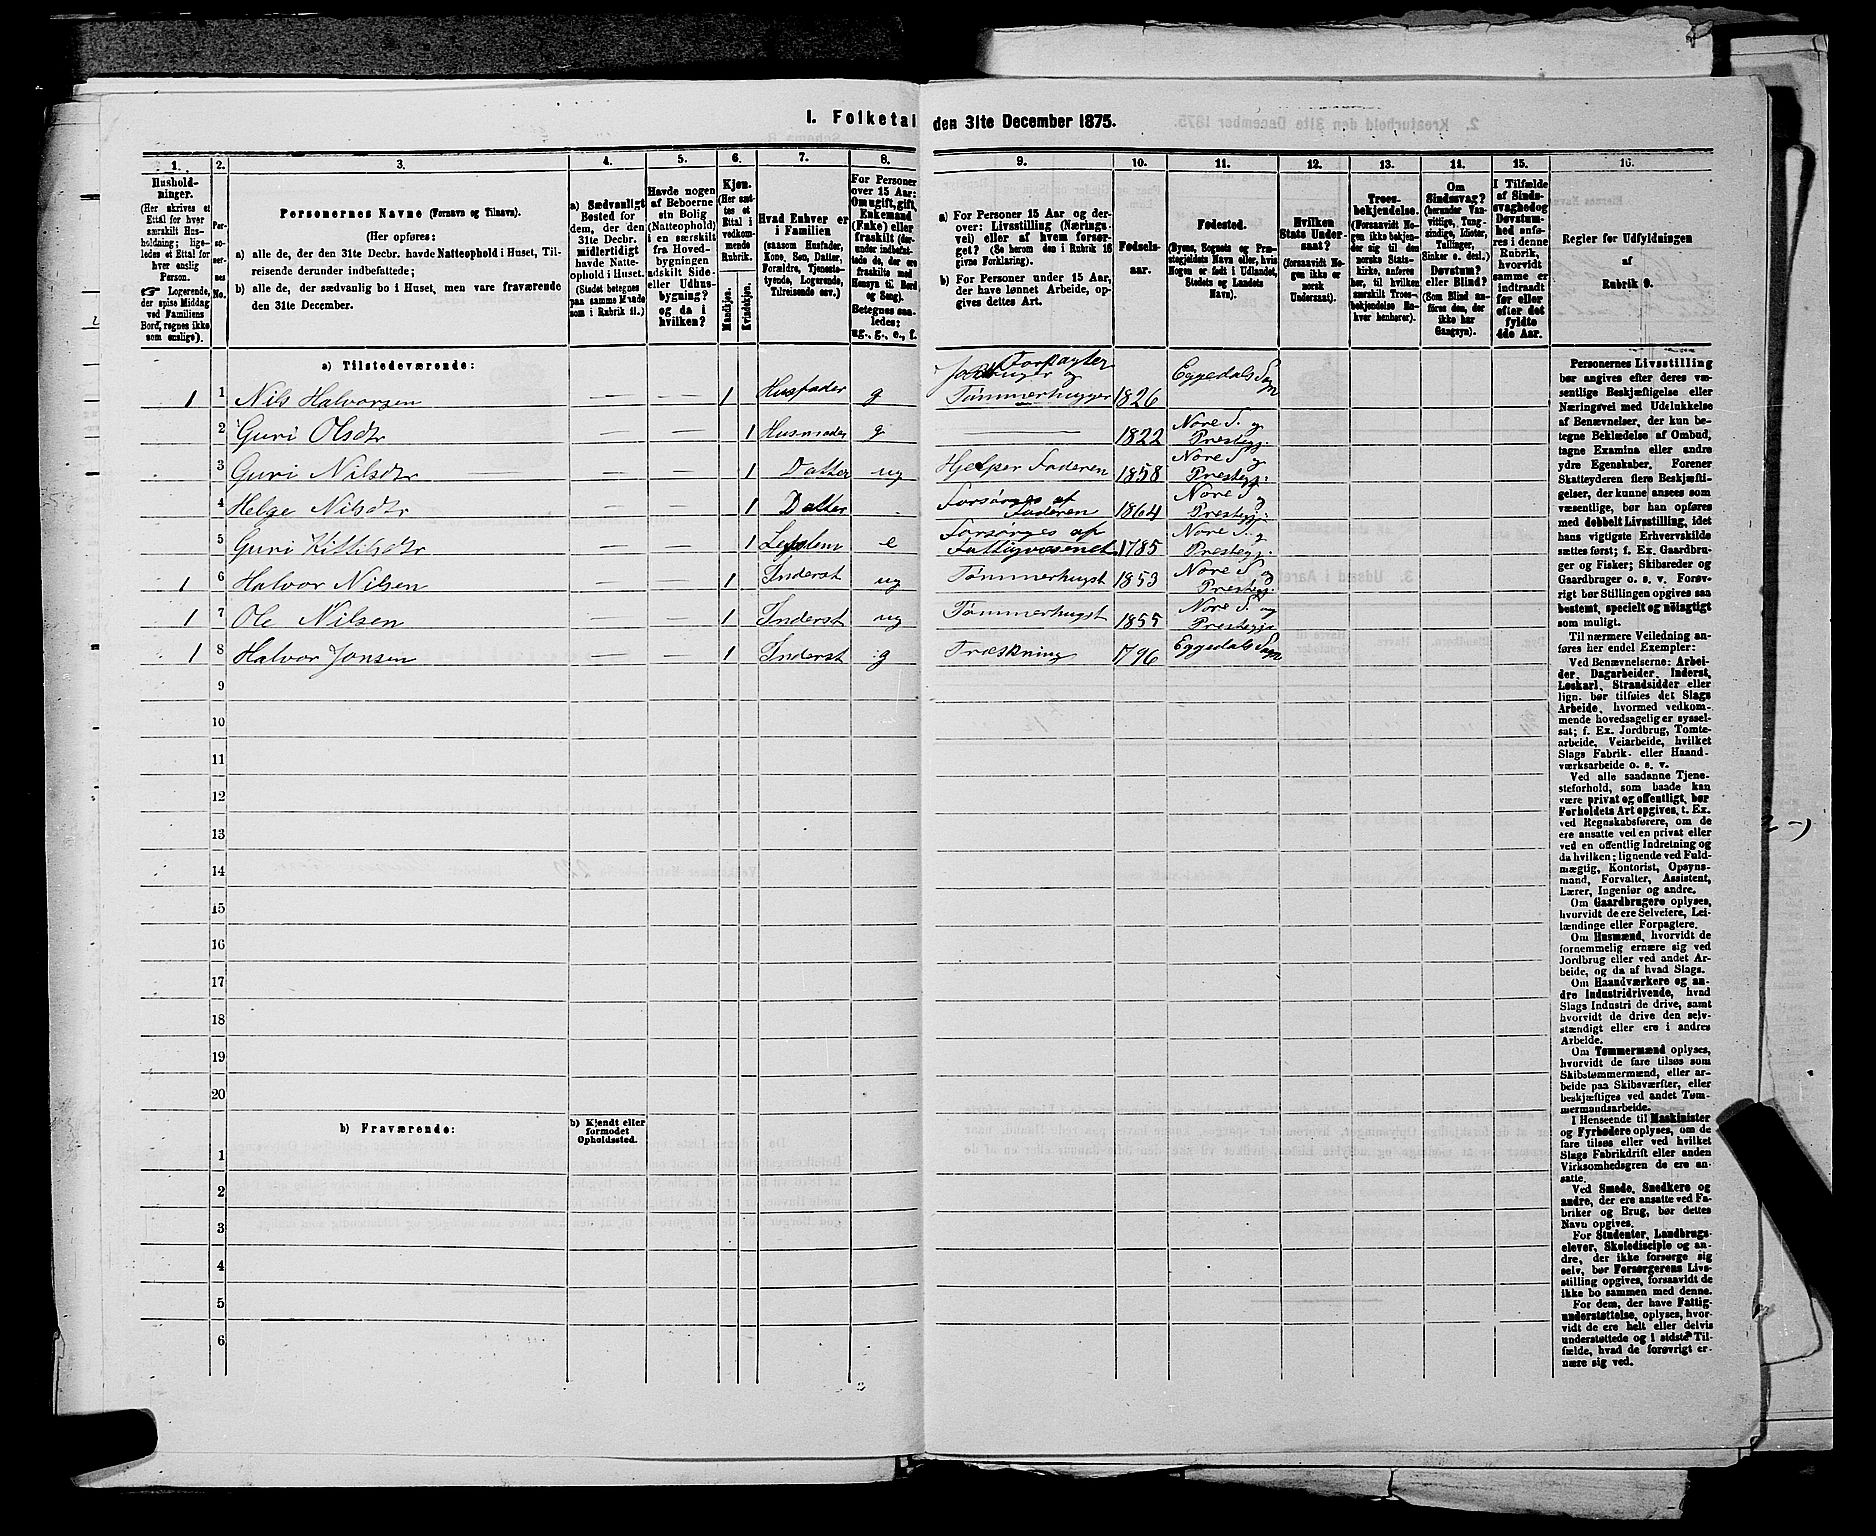 I. Folketal den 31te December 1875.
1. 2. 3. 4. 5. 6. 7. 8. 9. 10. 11. 12. 13. 14. 15. 16.
Hushold-
ninger.
(Her skrives et
Ettal for hver
særskilt Hus-
holdning; lige-
ledes et Ettal for
hver enslig
Person.
☞ Logerende,
der spise Middag
ved Familiens
Bord, regnes ikke
som enslige).
Per-
so-
ner-
nes
No.
Personernes Navne (Fornavn og Tilnavn).
(Her opføres:
a) alle de, der den 31te Decbr. havde Natteophold i Huset, Til-
reisende derunder indbefattede;
b) alle de, der sædvanlig bo i Huset, men vare fraværende
den 31te December.
a) Sædvanligt
Bosted for
dem, der den
31te Decbr.
midlertidigt
havde Natte-
ophold i Huset.
(Stedet betegnes
paa samme Maade
som i Rubrik 11.)
Havde nogen
af Beboerne
sin Bolig
(Natteophold)
i en særskilt
fra Hoved-
bygningen
adskilt Side-
eller Udhus-
bygning?
og da i
hvilken?
Kjøn.
(Her sæt-
tes et
Ettal i
vedkom-
mende
Rubrik.
Mandkjøn.
Kvindekjøn.
Hvad Enhver er
i Familien
(saasom Husfader,
Kone, Søn, Datter,
Forældre, Tjeneste-
tyende, Logerende,
Tilreisende osv.)
For Personer
over 15 Aar:
Om ugift, gift,
Enkemand
(Enke) eller
fraskilt (der-
under indbefat-
tede de, der ere
fraskilte med
Hensyn til Bord
og Seng).
Betegnes saa-
ledes:
ug., g., e., f.
a) For Personer 15 Aar og der-
over: Livsstilling (Nærings-
vei) eller af hvem forsør-
get? (Se herom den i Rubrik 16
givne Forklaring).
b) For Personer under 15 Aar,
der have lønnet Arbeide, op-
gives dettes Art.
Fødsels-
aar.
Fødested.
(Byens, Sognets og Præ-
stegjeldets Navn eller, hvis
Nogen er født i Udlandet,
Stedets og Landets
Navn).
Hvilken
Stats Under-
saat?
(forsaavidt No-
gen ikke er
norsk
Undersaat).
Troes-
bekjendelse.
(Forsaavidt No-
gen ikke bekjen-
der sig til den
norske Stats-
kirke, anføres
her, til hvilken
særskilt Troes-
bekjendelse En-
hver henhører).
Om
Sindssvag?
(herunder Van-
vittige, Tung-
sindige, Idioter,
Tullinger,
Sinker o. desl.)
Døvstum?
eller Blind?
(Som Blind an-
føres den, der
ikke har
Gangsyn).
I Tilfælde
af Sinds-
svaghed og
Døvstum-
hed anfø-
res i denne
Rubrik,
hvorvidt
samme er
indtraadt
før eller
efter det
fyldte
4de Aar.
Regler for Udfyldningen
af
Rubrik 9.
a) Tilstedeværende:
1 1 Nils Halvorsen — — 1 Husfader g Jordbruger Forpagter og Tømmerhugger 1826 Eggedals Sogn
2 Guri Olsdtr — — 1 Husmoder g — 1822 Nore S. og Prestegj.
3 Guri Nilsdtr — — 1 Datter ug Hjelper Faderen 1858 Nore S. og Prestegj.
4 Helge Nilsdtr — — 1 Datter Forsørges af Faderen 1864 Nore S. og Prestegj.
5 Guri Kittilsdtr — — 1 e Forsørges af Fattigvæsenet 1785 Nore S. og Prestegj.
1 6 Halvor Nilsen — — 1 Inderst ug Tømmerhugst 1853 Nore S. og Prestegj.
1 7 Ole Nilsen — — 1 Inderst ug Tømmerhugst 1855 Nore S. og Prestegj.
1 8 Halvor Jonsen — — 1 Inderst g Træskning 1796 Eggedals Sogn
9
10
11
12
13
14
15
16
17
18
19
20
b) Fraværende:
b) Kjendt eller
formodet
Opholdssted.
1
2
3
4
5
6
Personernes Livsstilling
bør angives efter deres væ-
sentlige Beskjæftigelse eller
Næringsvei med Udelukkelse
af Benævnelser, der kun be-
tegne Beklædelse af Ombud,
tagne Examina eller andre
ydre Egenskaber. Forener
Skatteyderen flere Beskjæfti-
gelser, der kunne ansees som
væsentlige, bør han opføres
med dobbelt Livsstilling, idet
hans vigtigste Erhvervskilde
sættes først; f. Ex. Gaardbru-
ger og Fisker; Skibsreder og
Gaardbruger o. s. v. Forøv-
rigt bør Stillingen opgives saa
bestemt, specielt og nøiagtigt
som muligt.
Til nærmere Veiledning an-
føres her endel Exempler:
Ved Benævnelserne: Arbei-
der, Dagarbeider, Inderst,
Løskarl, Strandsidder eller
lign. bør tilføies det Slags
Arbeide, hvormed vedkom-
mende hovedsagelig er syssel-
sat; f. Ex. Jordbrug, Tomte-
arbeide, Veiarbeide, hvilket
Slags Fabrik- eller Haand-
værksarbeide o. s. v.
Ved alle saadanne Tjene-
steforhold, som baade kan
være privat og offentligt, bør
Forholdets Art opgives, t. Ex.
ved Regnskabsførere, om de
ere ansatte ved en privat eller
ved en offentlig Indretning og
da hvilken; lignende ved Fuld-
mægtig, Kontorist, Opsyns-
mand, Forvalter, Assistent,
Lærer, Ingeniør og andre.
Om Gaardbrugere oplyses,
hvorvidt de ere Selveiere, Lei-
lændinge eller Forpagtere.
Om Husmænd, hvorvidt de
fornemmelig ernære sig ved
Jordbrug eller ved andet Ar-
beide, og da af hvad Slags.
Om Haandværkere og an-
dre Industridrivende, hvad
Slags Industri de drive, samt
hvorvidt de drive den selv-
stændigt eller ere i andres
Arbeide.
Om Tømmermænd oplyses,
hvorvidt de fare tilsøs som
Skibstømmermænd, eller ar-
beide paa Skibsværfter, eller
beskjæftiges ved andet Tøm-
mermandsarbeide.
I Henseende til Maskinister
og Fyrbødere oplyses, om de
fare tilsøs eller ved hvilket
Slags Fabrikdrift eller anden
Virksomhedsgren de ere an-
satte.
Ved Smede, Snedkere og
andre, der ere ansatte ved Fa-
briker og Brug, bør dettes
Navn opgives.
For Studenter, Landbrugs-
elever, Skoledisciple og an-
dre, der ikke forsørge sig
selv, bør Forsørgerens Livs-
stilling opgives, forsaavidt de
ikke bo sammen med denne.
For dem, der have Fattig-
understøttelse, oplyses, hvor-
vidt de ere helt eller delvis
understøttede og i sidste Til-
fælde, hvad de forøvrigt er-
nære sig ved.